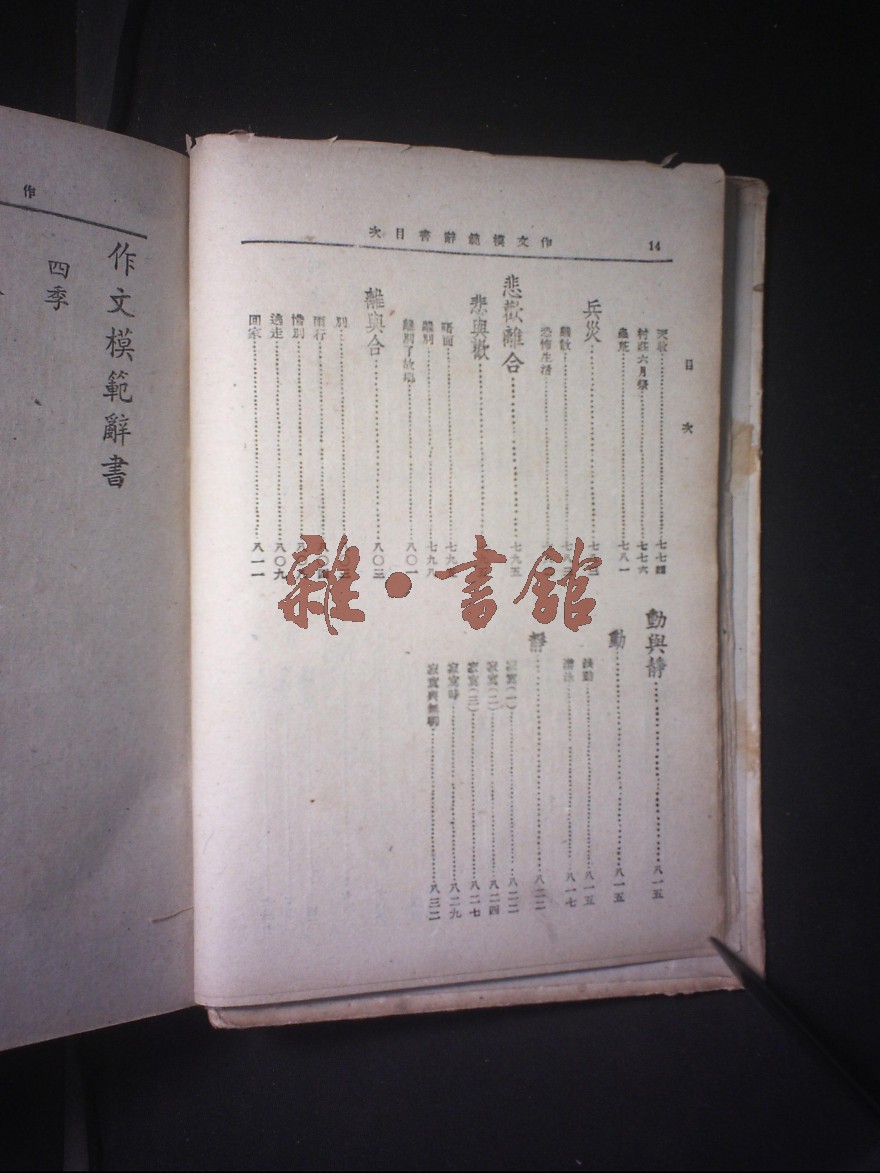 作文模範辭書目次
14
目次
天收……七七四
村莊六月祭……七七六
蟲荒……七八一
兵災
離散
恐怖生活
悲歡離合……七九五
悲與歡
晤面
離別……七九八
離別了故鄉……八〇一
離與合……八〇三
別
雨行
惜別
逃走……八〇九
回家……八一一
動與靜……八一五
動……八一五
……八一五
……八一七
靜……八二二
寂寞(一)……八二二
寂寞(二)……八二四
寂寞(三)……八二七
寂寞時……八二九
……八三二
作
作文模範辭書
四季
雜·書館